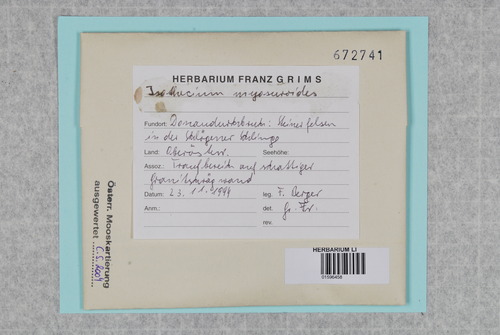 672741
HERBARIUM FRANZ GRIMS
Isothecium myosuroides
Fundort: Donaudurchbruch: Steinerfelsen
in der Schlögener Schlinge
Land: Oberösterr. Seehöhe:
Assoz.: Traufbereich auf schattiger
Granitschrägwand
Datum: 23. 11. 1994 leg. F. Berger
Anm.: det. Gr. Fr.
rev.
Österr. Mooskartierung
ausgewertet
HERBARIUM LI